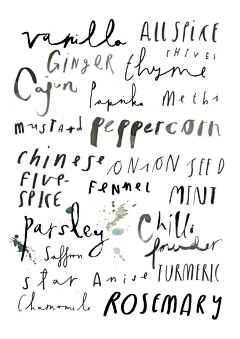 vanilla ALLSPICE
CHIVES
GINGER thyme
Cajun
Paprika Methi
mustard peppercorn
chinese ONION SEED
FIVE-
SPICE FENNEL MINT
parsley Chilli
powder
Saffron
star Anise TURMERIC
Chamomile ROSEMARY